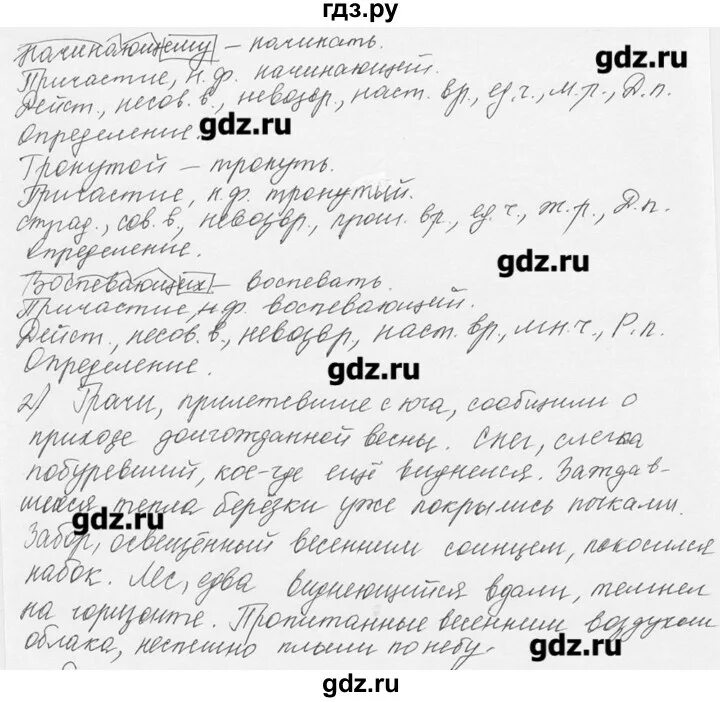 гдз.ру
Начинающему – начинать.
gdz.ru
Причастие, н.ф. начинающий.
Дейст., несов. в., невозвр., наст. вр., ед. ч., м. р., Д. п.
Определение.
gdz.ru
Тронутой – тронуть.
Причастие, н.ф. тронутый.
страд., сов. в., невозвр., прош. вр., ед. ч., ж. р., Д. п.
Определение.
gdz.ru
Воспевающих – воспевать.
Причастие, н.ф. воспевающий.
Дейст., несов. в., невозвр., наст. вр., мн. ч., Р. п.
Определение.
gdz.ru
2) Грачи, прилетевшие с юга, сообщили о
приходе долгожданной весны. Снег, слегка
побуревший, кое-где ещё виднелся. Заждав-
шиеся тепла берёзки уже покрылись почками.
gdz.ru
Забор, освещённый весенним солнцем, покосился
набок. Лес, едва виднеющийся вдали, темнел
на горизонте. Пропитанные весенним воздухом
облака, неспешно плыли по небу.
gdz.ru
gdz.ru